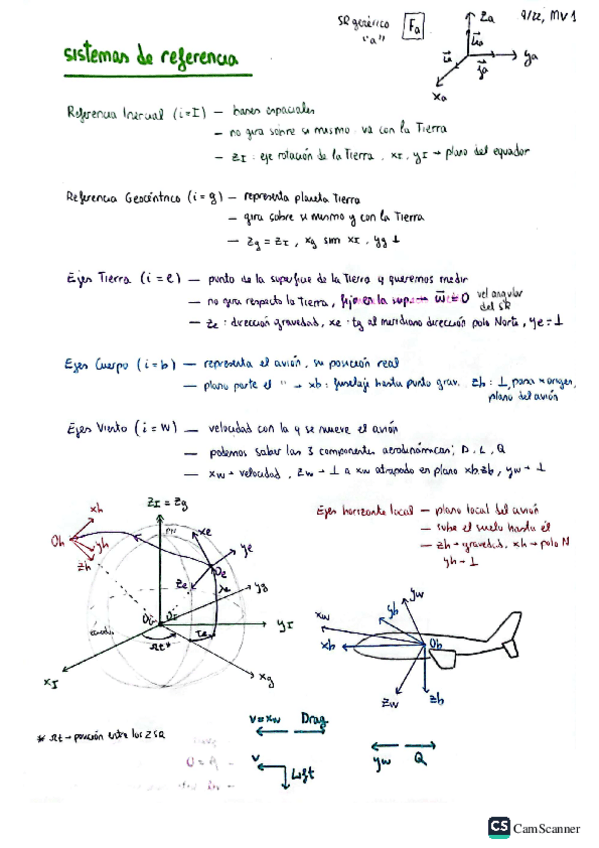 SR genérico Fa za 9/22, MV1
"a" ya
xa
sistemas de referencia
Referencia Inercial (i=I) — bases espaciales
— no gira sobre si mismo. va con la Tierra
— zI: eje rotación de la Tierra, xI, yI → plano del equador
Referencia Geocéntrico (i=g) — representa planeta Tierra
— gira sobre si mismo y con la Tierra
— zg = zI, xg sim xI, yg ⊥
Ejes Tierra (i=e) — punto de la superficie de la Tierra q queremos medir
— no gira respecto la Tierra, fijo en la sup → ω = 0 vel angular
del SR
— ze: dirección gravedad, xe: tg al meridiano dirección polo Norte, ye = ⊥
Ejes Cuerpo (i=b) — representa el avión, su posición real
— plano parte el " → xb: fuselaje hasta punto grav. zb: ⊥ para x origen,
plano del avión
Ejes Viento (i=w) — velocidad con la q se mueve el avión
— podemos saber las 3 componentes aerodinámicas; D, L, Q
— xw → velocidad, zw → ⊥ a xw atrapado en plano xbzb, yw → ⊥
Ejes horizonte local — plano local del avión
— sube el suelo hasta él
— zh → gravedad, xh → polo N
yh → ⊥
zI = zg
xh
PN
Oh
yh
zh
xe
ye
Oe
ze
yg
λe
yI
Ωt*
τe
xI
xg
yw
yb
xw
xb
Ob
zw
zb
* Ωt → posición entre los 2 SR
v=xw Drag
v
Lift
yw Q
CS CamScanner